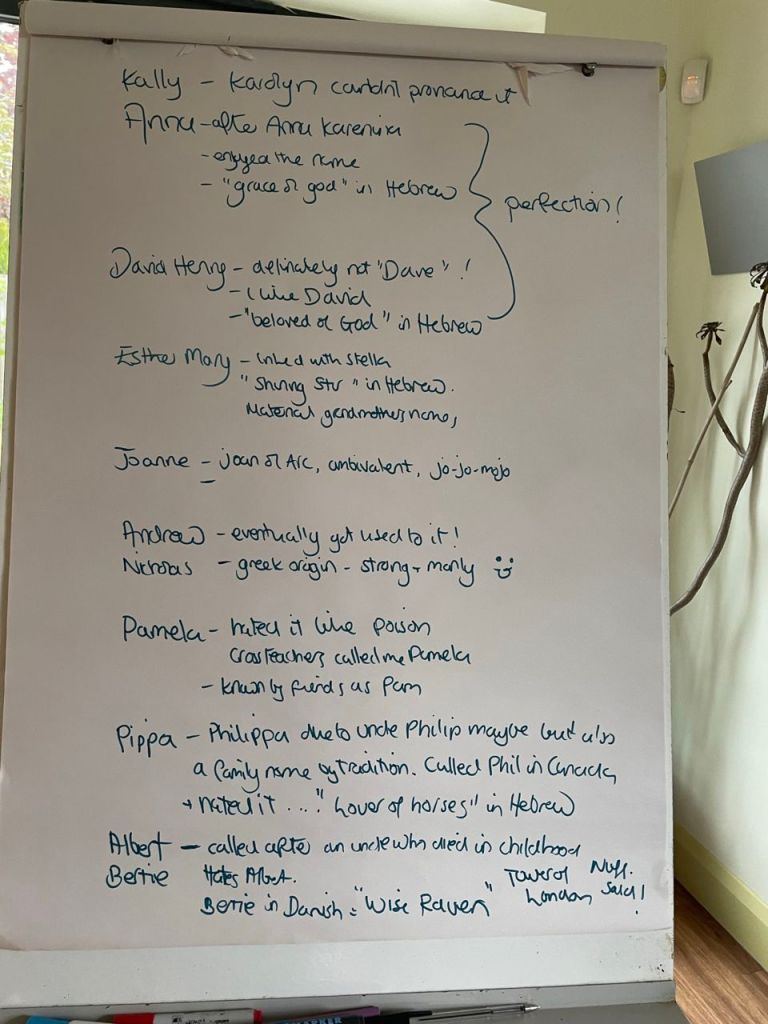 Kally - Karolyn couldn't pronounce it
Anna - after Anna Karenina
- enjoyed the name
- "grace of god" in Hebrew
perfection!
David Henry - definately not "Dave"!
- I like David
- "beloved of God" in Hebrew
Esther Mary - linked with Stella
"Shining Star" in Hebrew.
Maternal grandmothers name,
Joanne - Joan of Arc, ambivalent, jo-jo-mojo
Andrew - eventually got used to it!
Nicholas - greek origin - strong + manly
Pamela - hated it like poison
Cross teachers called me Pamela
- known by friends as Pam
Pippa - Philippa due to uncle Philip maybe but also
a family name by tradition. Called Phil in Canada
+ hated it ... "Lover of horses" in Hebrew
Albert - called after an uncle who died in childhood
Bertie Hates Albert.
Bertie in Danish = "Wise Raven" Tower of London Nuff. Said!